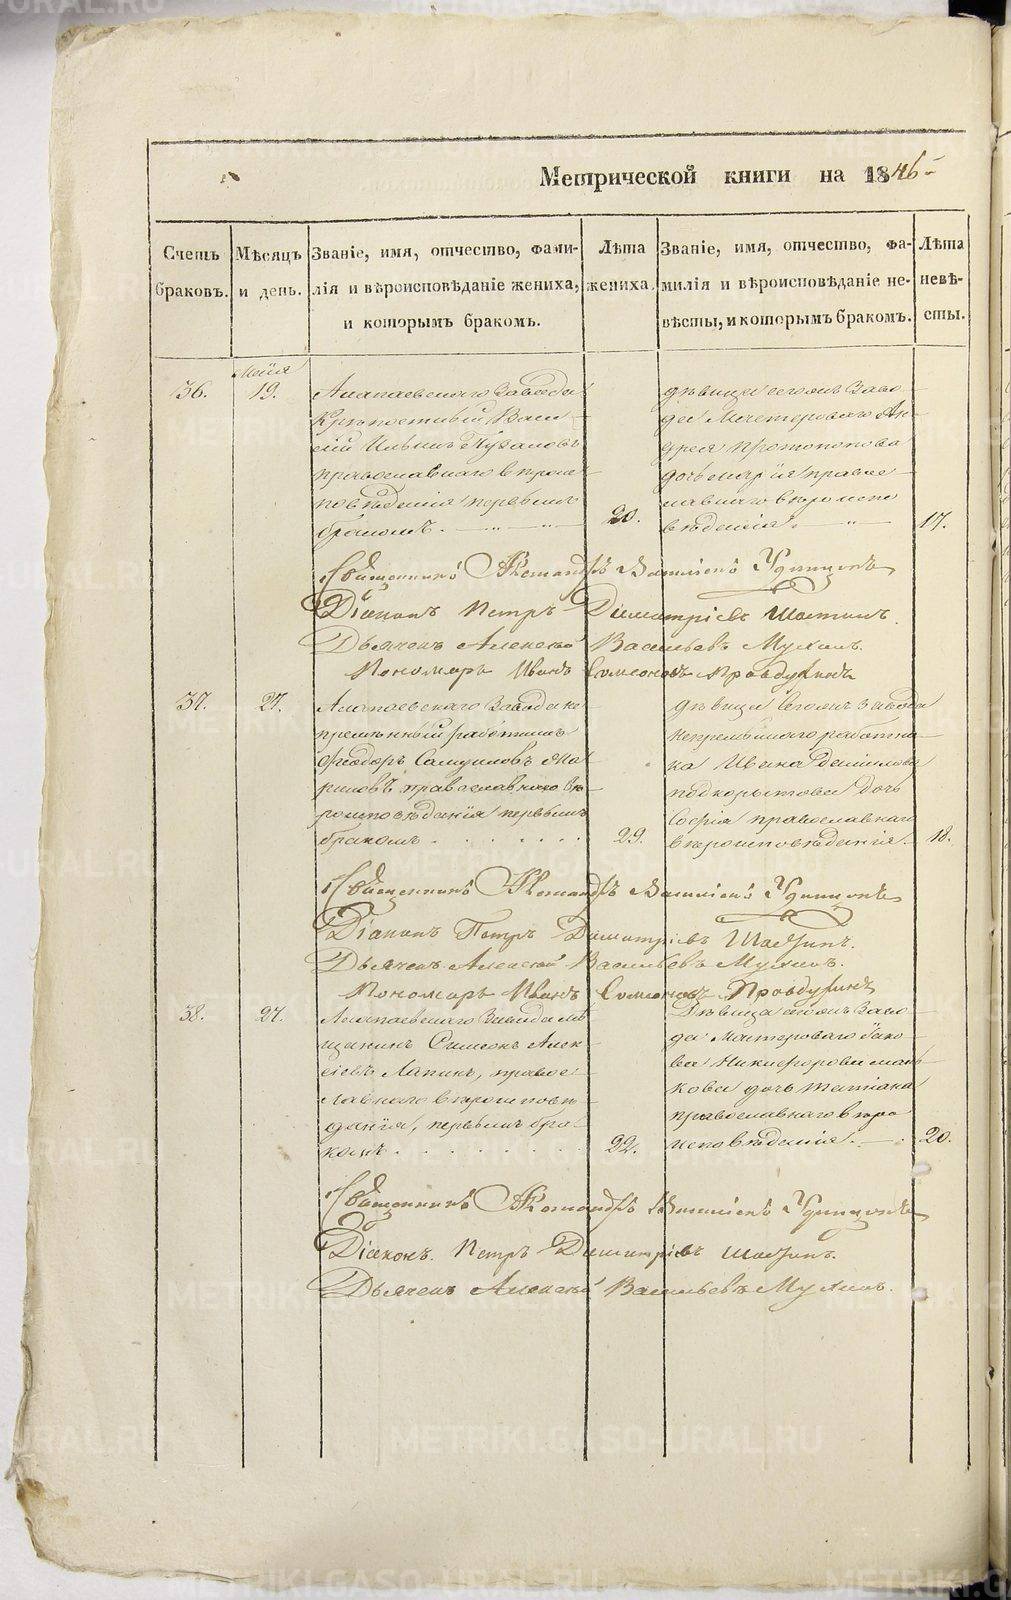 Метрической книги на 1846
Счетъ браковъ.
Мѣсяцъ и день.
Званіе, имя, отчество, фами-
лія и вѣроисповѣданіе жениха,
и которымъ бракомъ.
Лѣта
жениха.
Званіе, имя, отчество, фа-
милія и вѣроисповѣданіе не-
вѣсты, и которымъ бракомъ.
Лѣта
невѣ-
сты.
36.
Маія
19.
Алапаевскаго завода
Крѣпостный Васи
лій Ильинъ
православнаго вѣрои
повѣданія первымъ
бракомъ.
20.
дѣвица сегожъ заво
да Мастероваго Ан
дрея Протопопова
дочь Марія правос
лавнаго вѣроиспо
вѣданія.
17.
Священникъ Александръ Василіевъ Удинцовъ
Діаконъ Петръ Димитріевъ Шастинъ.
Дьячекъ Алексѣй Васильевъ Мухинъ.
Пономарь Иванъ Симеоновъ Правдухинъ
37.
27.
Алапаевскаго завода не
премѣнный работникъ
Феодоръ Самуиловъ
православнаго вѣ
роисповѣданія первымъ
бракомъ
29.
дѣвица сегожъ завода
непремѣннаго работни
ка Ивана Данилова
Подкорытова дочь
Софія православнаго
вѣроисповѣданія.
18.
Священникъ Александръ Василіевъ Удинцовъ
Діаконъ Петръ Димитріевъ Шастинъ.
Дьячекъ Алексѣй Васильевъ Мухинъ.
Пономарь Иванъ Симеоновъ Правдухинъ
38.
27.
Алапаевскаго завода мѣ
щанинъ Симеонъ Алек
сіевъ Лапинъ, правос
лавнаго вѣроисповѣ
данія, первымъ бра
комъ
22.
Дѣвица сегожъ заво
да Мастероваго Іако
ва Никифорова
кова дочь Татіана
православнаго вѣро
исповѣданія.
20.
Священникъ Александръ Василіевъ Удинцовъ
Діаконъ Петръ Димитріевъ Шастинъ.
Дьячекъ Алексѣй Васильевъ Мухинъ.
METRIKI.GASO-URAL.RU